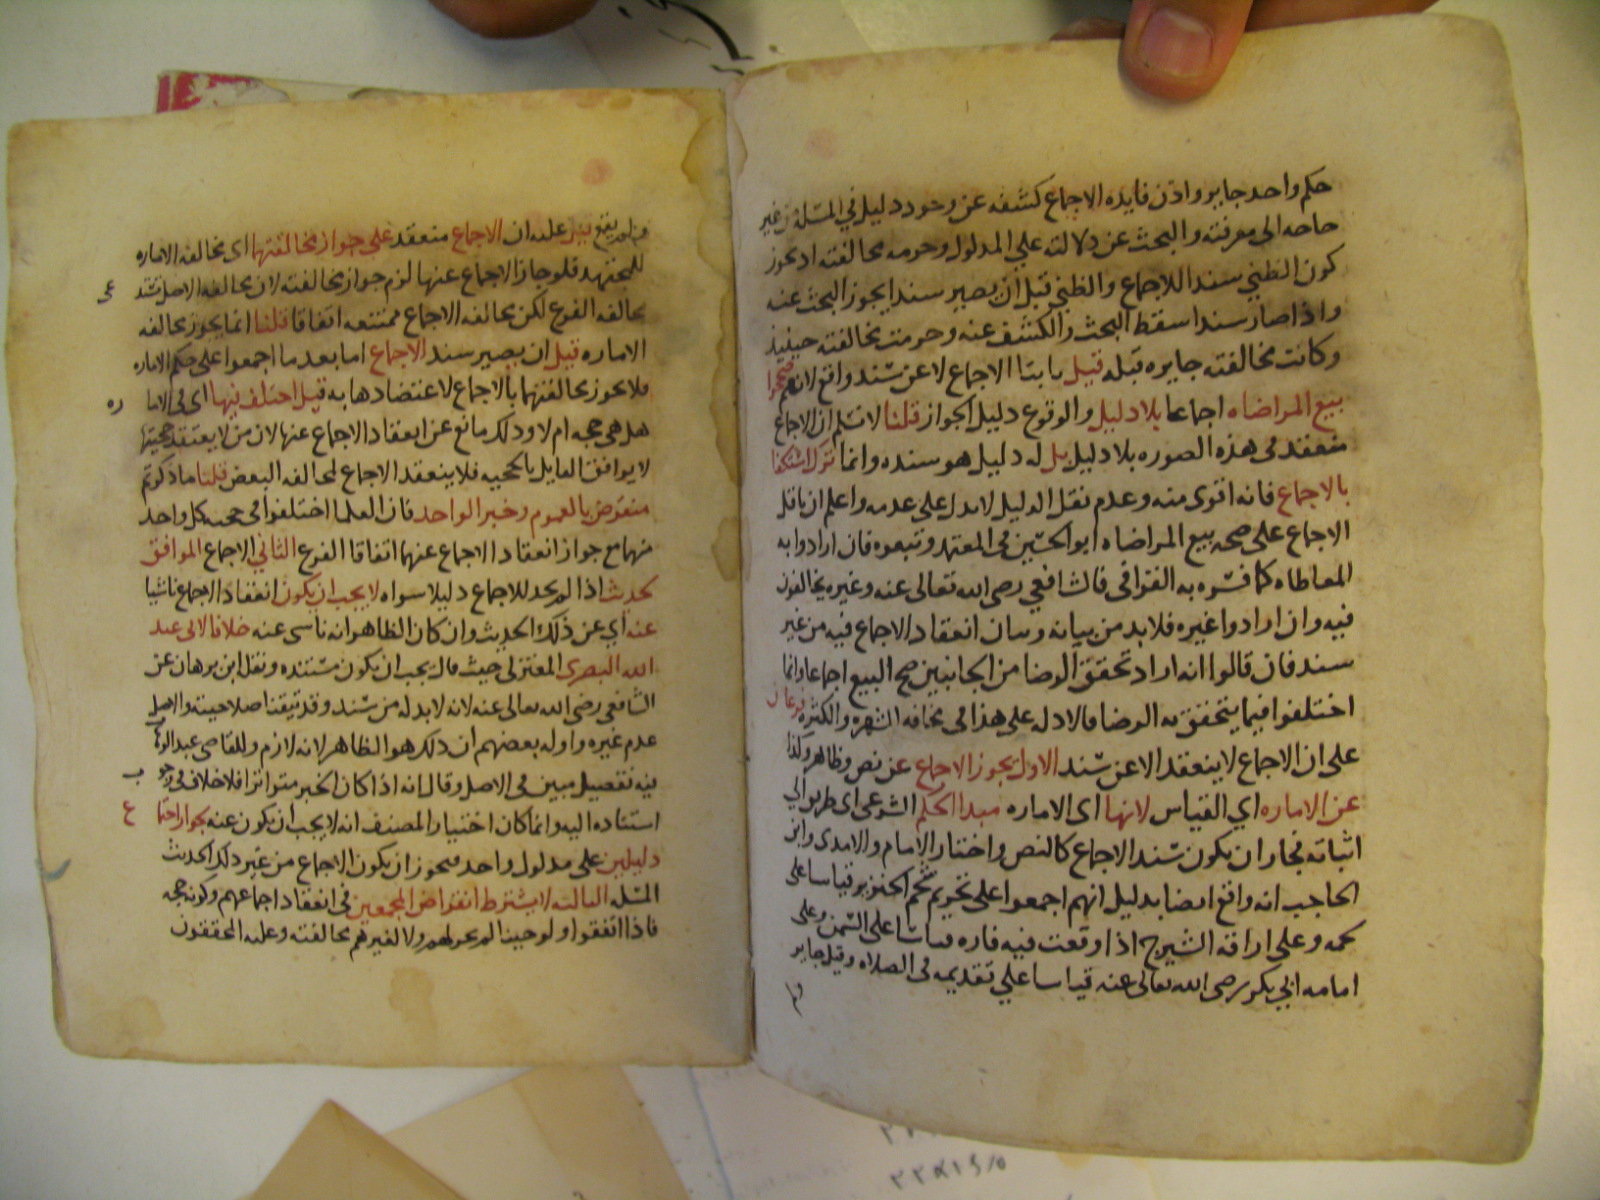 حكم واحد جايز واذن فايده الاجماع كشفه عن وجود دليل في المسله من غير
حاجه الى معرفته والبحث عن دلالته علي المدلول وحرمه مخالفته اذ يجوز
كون الظني سندا للاجماع والظني قبل ان يصير سندا يجوز البحث عنه
واذا صار سندا سقط البحث والكشف عنه وحرمت مخالفته حينيذ
وكانت مخالفته جايزه قبله قيل بابتا الاجماع لا عن سند واقع لانهم صححوا
بيع المراضاه اجماعا بلا دليل والوقوع دليل الجواز قلنا لا نسلم ان الاجماع
منعقد في هذه الصوره بلا دليل بل له دليل هو سنده وانما ترك استكفا
بالاجماع فانه اقوى منه وعدم نقل الدليل لا يدل على عدمه واعلم ان ناقل
الاجماع على صحه بيع المراضاه ابو الحسين في المعتمد وتبعوه فان ارادوا به
المعاطاه كما فسره به القرافي فالشافعي رضي الله تعالى عنه وغيره يخالفون
فيه وان ارادوا غيره فلا بد من بيانه وبيان انعقاد الاجماع فيه من غير
سند فان قالوا انه اراد تحقق الرضا من الجانبين صح البيع اجماعا وانما
اختلفوا فيما يتحقق به الرضا فالادله على هذا في غايه الشهره والكثره فرعان
على ان الاجماع لا ينعقد الا عن سند الاول يجوز الاجماع عن نص وظاهر وكذا
عن الاماره اي القياس لانها اى الاماره مبدا الحكم الشرعي اى طريق الي
اثباته فجاز ان يكون سند الاجماع كالنص واختار الامام والامدي وابن
الحاجب انه واقع ايضا بدليل انهم اجمعوا على تحريم شحم الخنزير قياسا على
لحمه وعلى اراقه الشيرج اذا وقعت فيه فاره قياسا على السمن وعلى
امامه ابي بكر رضى الله تعالى عنه قياسا علي تقديمه في الصلاه وقيل جايز
قيل عليه ان الاجماع منعقد علي جواز مخالفتها اى مخالفه الاماره
للمجتهد فلو جاز الاجماع عنها لزم جواز مخالفته لان مخالفه الاصل
مخالفه الفرع لكن مخالفه الاجماع ممتنعه اتفاقا قلنا انما يجوز مخالفه
الاماره قبل ان يصير سند الاجماع اما بعد ما اجمعوا على حكم الاماره
فلا يجوز مخالفتها بالاجماع لاعتضادها به قيل اختلف فيها اى في الاما ره
هل هي حجه ام لا وذلك مانع عن انعقاد الاجماع عنها لان من لا يعتقد حجيتها
لا يوافق القايل بالحجيه فلا ينعقد الاجماع لمخالفه البعض قلنا ما ذكرتم
منقوض بالعموم وخبر الواحد فان العلما اختلفوا في حجيه كل واحد
منهما مع جواز انعقاد الاجماع عنهما اتفاقا الفرع الثاني الاجماع الموافق
لحديث اذا لم يجد للاجماع دليلا سواه لا يجب ان يكون انعقاد الاجماع ناشيا
عنه اي عن ذلك الحديث وان كان الظاهر انه ناشي عنه خلافا لابى عبد
الله البصري المعتزلى حيث قال يجب ان يكون مستنده ونقل ابن برهان عن
الشافعي رضي الله تعالى عنه لانه لا بد له من سند وقد تيقنا صلاحيته والاصل
عدم غيره واوله بعضهم ان ذلك هو الظاهر لانه لازم وللقاضى عبد الوها ب
فيه تفصيل مبين في الاصل وقال انه اذا كان الخبر متواترا فلا خلاف في وجو ب
استناده اليه وانما كان اختيار المصنف انه لا يجب ان يكون عنه لجواز اجتما ع
دليلين على مدلول واحد فيجوز ان يكون الاجماع من غير ذلك الحديث
المسله الثالثه لا يشترط انقراض المجمعين في انعقاد اجماعهم وكونه حجه
فاذا اتفقوا ولو حينا لم يجز لهم ولا لغيرهم مخالفته وعليه المحققون